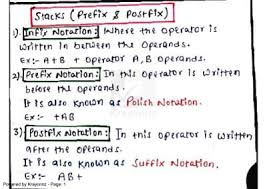 Stacks (Prefix & Postfix)
1) Infix Notation: Where the operator is
written in between the operands.
Ex:- A+B + operator A, B operands.
2) Prefix Notation: In this operator is written
before the operands.
It is also known as Polish Notation.
Ex:- +AB
3) Postfix Notation: In this operator is written
after the operands.
It is also known as Suffix Notation.
Ex:- AB+
Powered by Kreyonnz - Page: 1